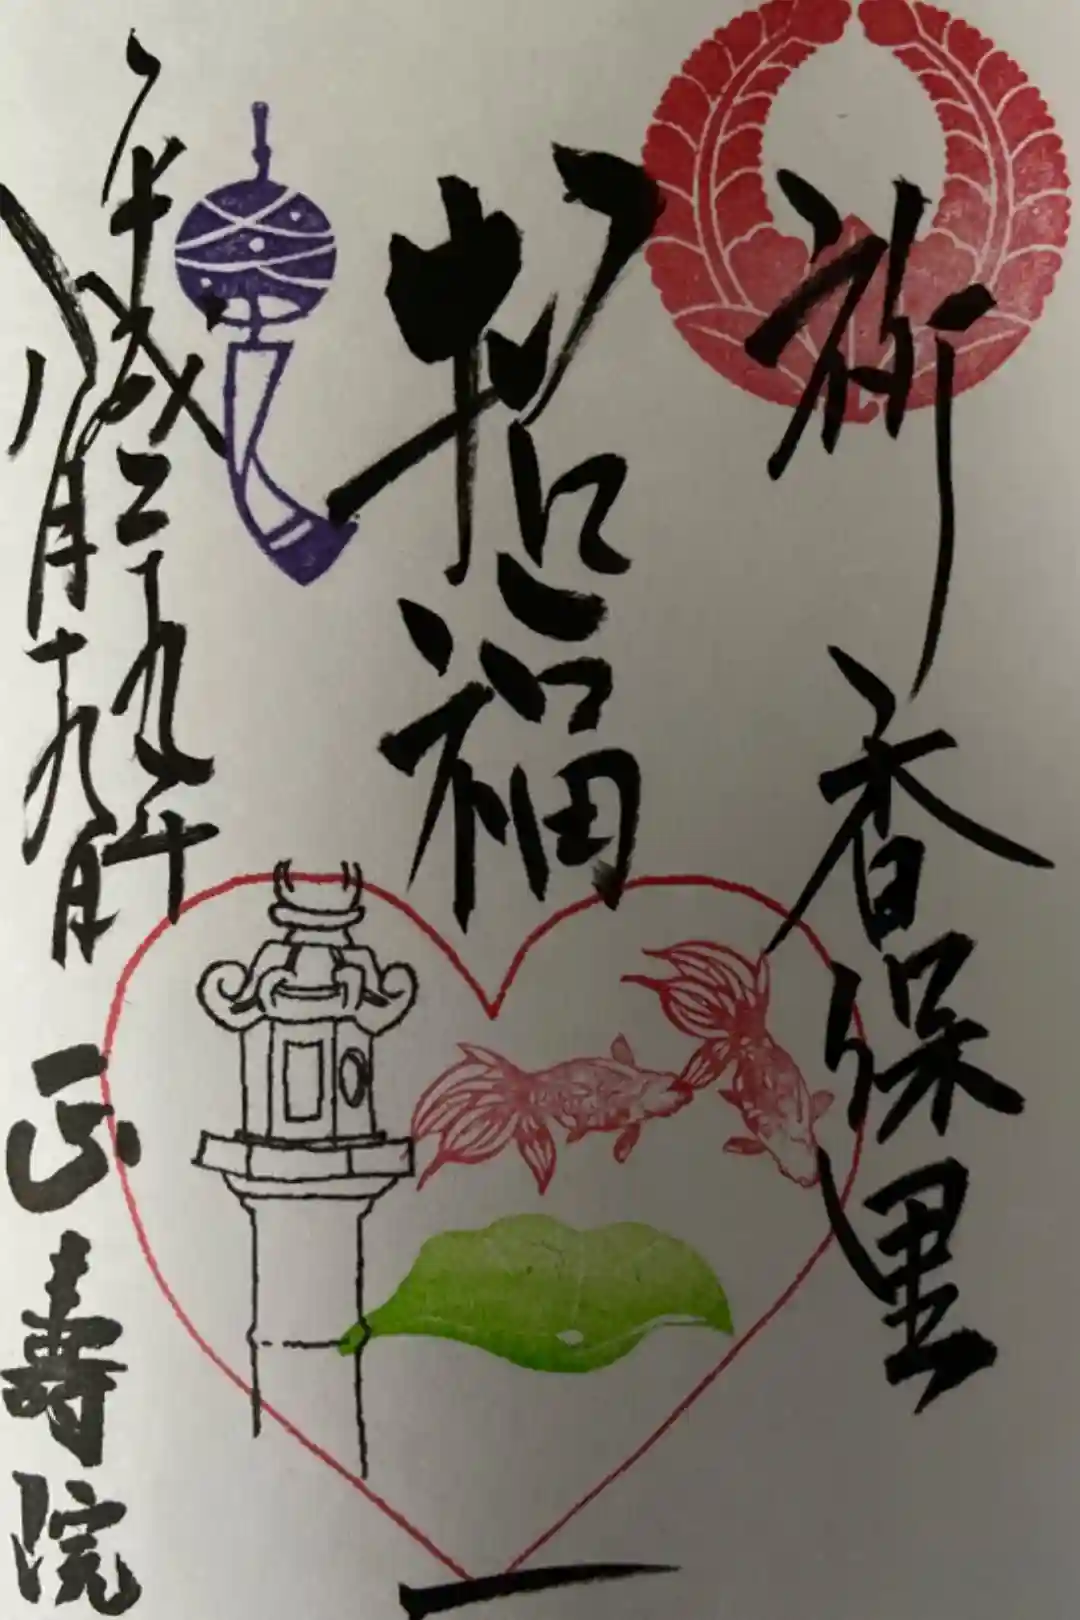 祈 香保里
招福
平成二十九年
八月十九日
正寿院